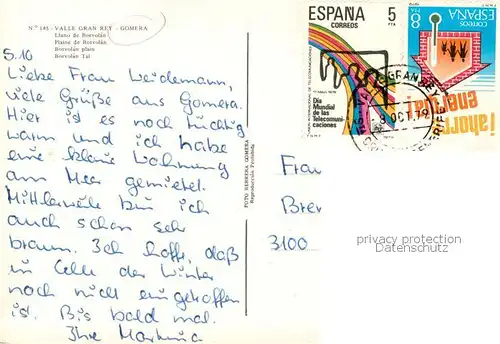 Nº 185 - VALLE GRAN REY - GOMERA
Llano de Borvolán
Plaine de Borvolán
Borvolán plain
Borvolán Tal
5.10
Liebe Frau Weidemann,
viele Grüße aus Gomera.
Hier ist es noch tüchtig
warm und ich habe
eine kleine Wohnung
am Meer gemietet.
Mittlerweile bin ich
auch schon sehr
braun. Ich hoffe, daß
in Celle der Winter
noch nicht eingetroffen
ist. Bis bald mal.
Ihre Martina
FOTO HERRERA GOMERA
Reproducción Prohibida
ESPAÑA
CORREOS
5
PTA
17 Mayo 1979
Día
Mundial
de las
Telecomuni-
caciones
ESPAÑA
CORREOS
8
PTA
¡ahorra
energía!
GRAN REY
9 OCT 79
TENERIFE
Frau
Bre
3100
privacy protection
Datenschutz